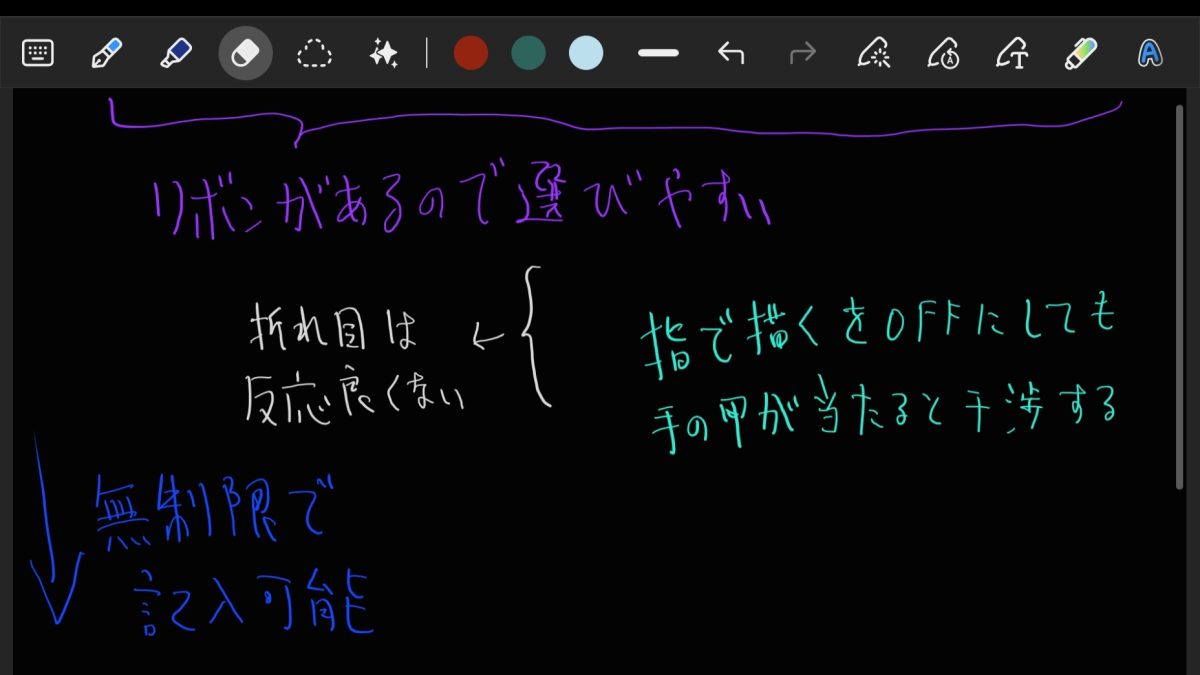 リボンがあるので選びやすい
折れ目は
反応良くない
指で描くをOFFにしても
手の甲が当たると干渉する
無制限で
記入可能